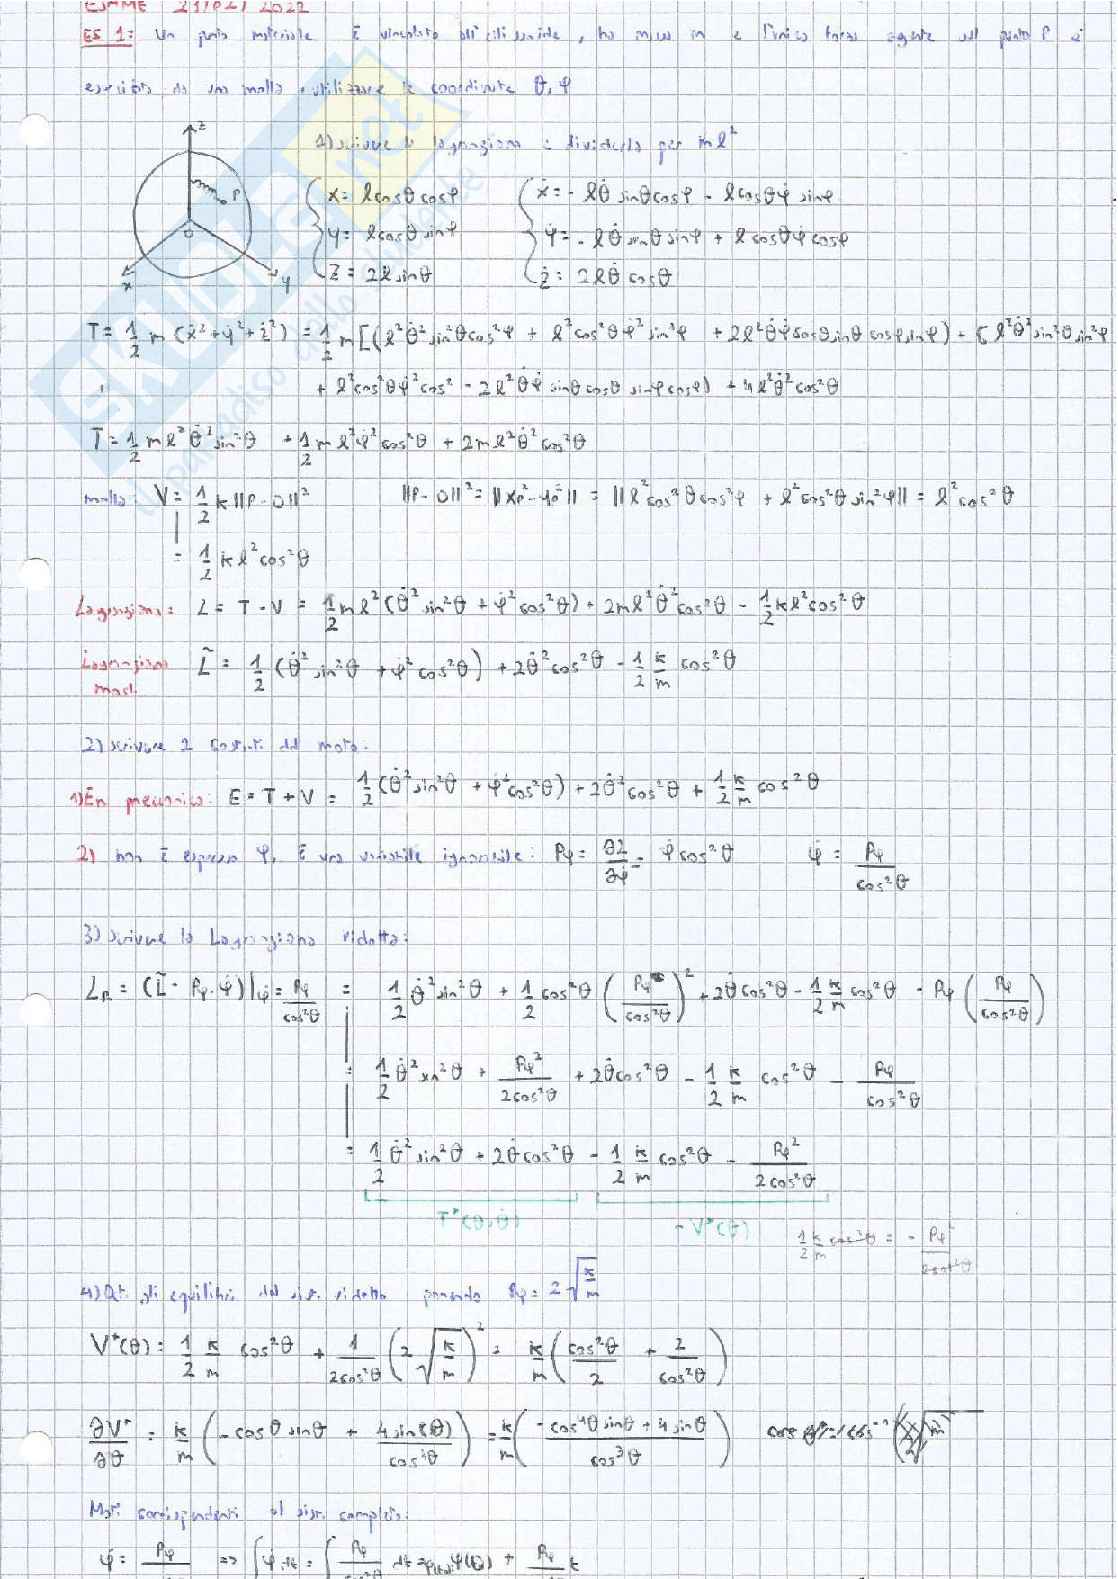 ESAME 21/02/2022
ES 1: Un punto materiale È vincolato all'ellissoide, ha massa m e l'unica forza agente sul punto P è
esercitata da una molla utilizzare le coordinate θ, φ
1) scrivere la lagrangiana e dividerla per mℓ²
z
P
O
x
y
x = ℓcosθcosφ
ẋ = - ℓθ̇ sinθcosφ - ℓcosθφ̇ sinφ
y = ℓcosθ sinφ
ẏ = - ℓθ̇ sinθ sinφ + ℓcosθφ̇cosφ
z = 2ℓ sinθ
ż = 2ℓθ̇ cosθ
T = 1/2 m (ẋ² + ẏ² + ż²) = 1/2 m [(ℓ²θ̇² sin²θcos²φ + ℓ²cos²θφ̇² sin²φ + 2ℓ²θ̇φ̇ cosθsinθ cosφsinφ) + (ℓ²θ̇² sin²θ sin²φ
+ ℓ²cos²θφ̇²cos² - 2ℓ²θ̇φ̇ sinθcosθ sinφcosφ) + 4ℓ²θ̇²cos²θ
T = 1/2 mℓ²θ̇² sin²θ + 1/2 mℓ²φ̇²cos²θ + 2mℓ²θ̇²cos²θ
molla: V = 1/2 k ||P - O||² ||P - O||² = ||xp² - yp²|| = ||ℓ²cos²θcos²φ + ℓ²cos²θ sin²φ|| = ℓ²cos²θ
= 1/2 kℓ²cos²θ
Lagrangiana: L = T - V = 1/2 mℓ²(θ̇² sin²θ + φ̇²cos²θ) + 2mℓ²θ̇²cos²θ - 1/2 kℓ²cos²θ
Lagrangiana L̃ = 1/2 (θ̇² sin²θ + φ̇²cos²θ) + 2θ̇²cos²θ - 1/2 k/m cos²θ
mod.
2) scrivere 2 costanti del moto:
1) En meccanica: E = T + V = 1/2 (θ̇² sin²θ + φ̇²cos²θ) + 2θ̇²cos²θ + 1/2 k/m cos²θ
2) non È espresso φ, È una variabile ignorabile: Pφ = ∂L/∂φ̇ = φ̇cos²θ φ̇ = Pφ/cos²θ
3) scrivere la Lagrangiana ridotta:
L_R = (L̃ - Pφ·φ̇)|φ̇ = Pφ/cos²θ = 1/2 θ̇² sin²θ + 1/2 cos²θ (Pφ/cos²θ)² + 2θ̇cos²θ - 1/2 k/m cos²θ - Pφ (Pφ/cos²θ)
= 1/2 θ̇² sin²θ + Pφ²/2cos²θ + 2θ̇cos²θ - 1/2 k/m cos²θ - Pφ/cos²θ
= 1/2 θ̇² sin²θ + 2θ̇cos²θ - 1/2 k/m cos²θ - Pφ²/2cos²θ
T*(θ,θ̇) - V*(θ)
1/2 k/m cos²θ = - Pφ²/2cos²θ
4) Det. gli equilibri del sist. ridotto ponendo Pφ = 2√(k/m)
V*(θ) = 1/2 k/m cos²θ + 1/2cos²θ (2√(k/m))² = k/m (cos²θ/2 + 2/cos²θ)
∂V*/∂θ = k/m (-cosθ sinθ + 4sin(θ)/cos³θ) = k/m (-cos⁴θ sinθ + 4sinθ/cos³θ)
Moti corrispondenti al sist. completo:
φ̇ = Pφ/cos²θ => ∫φ̇ dt = ∫Pφ/cos²θ dt